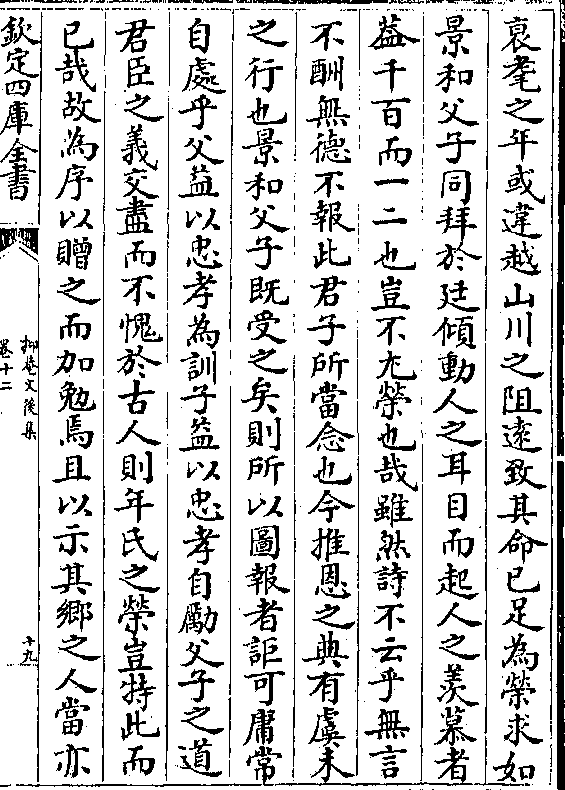 衰耄之年或違越山川之阻遠致其命已足為榮求如
景和父子同拜於廷傾動人之耳目而起人之羨慕者
葢千百而一二也豈不尤榮也哉雖然詩不云乎無言
不酬無德不報此君子所當念也今推恩之典有虞未
之行也景和父子既受之矣則所以圖報者詎可庸常
自處乎父益以忠孝為訓子益以忠孝自勵父子之道
君臣之義交盡而不愧於古人則年氏之榮豈特此而
已哉故為序以贈之而加勉焉且以示其鄉之人當亦
欽定四庫全書
抑菴文後集
卷十二
十九